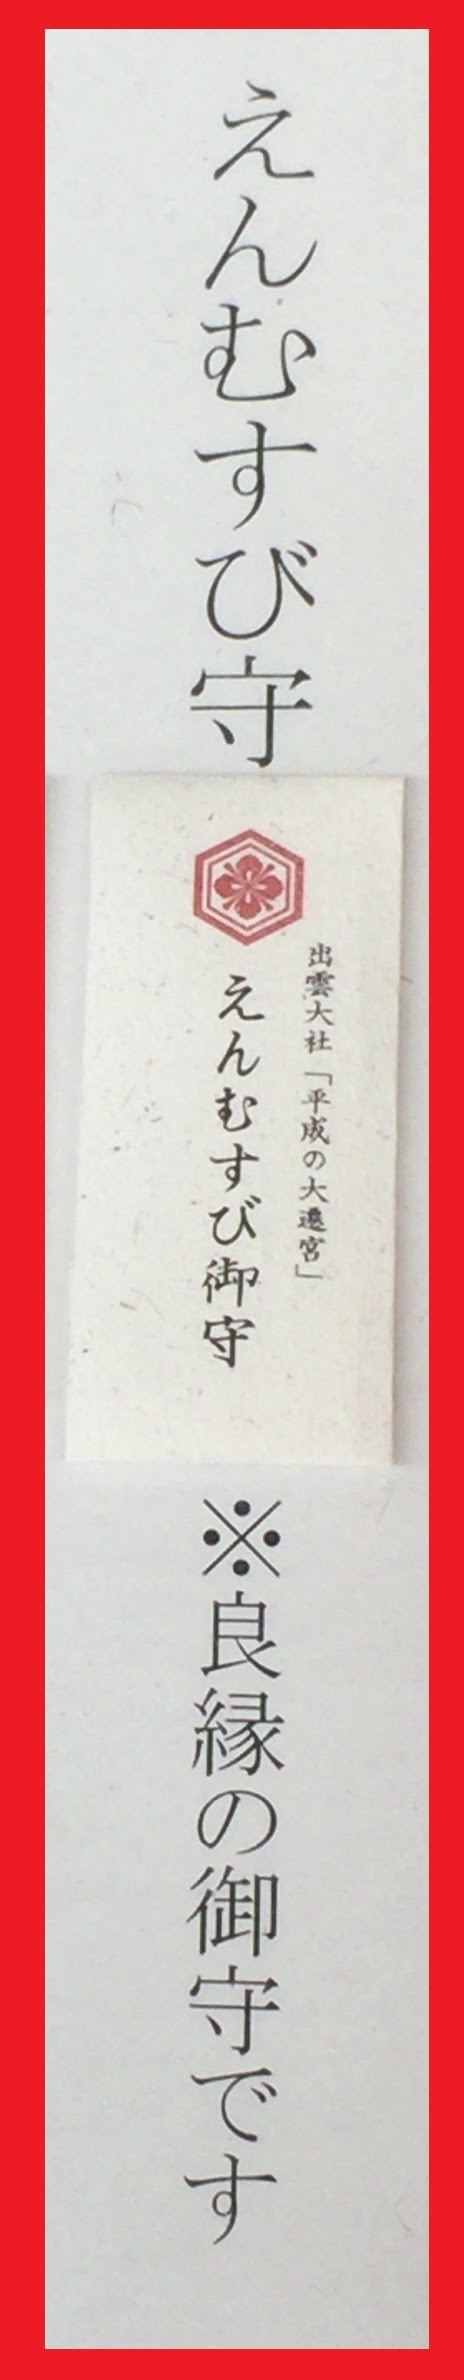 えんむすび守
出雲大社「平成の大遷宮」
えんむすび御守
※良縁の御守です